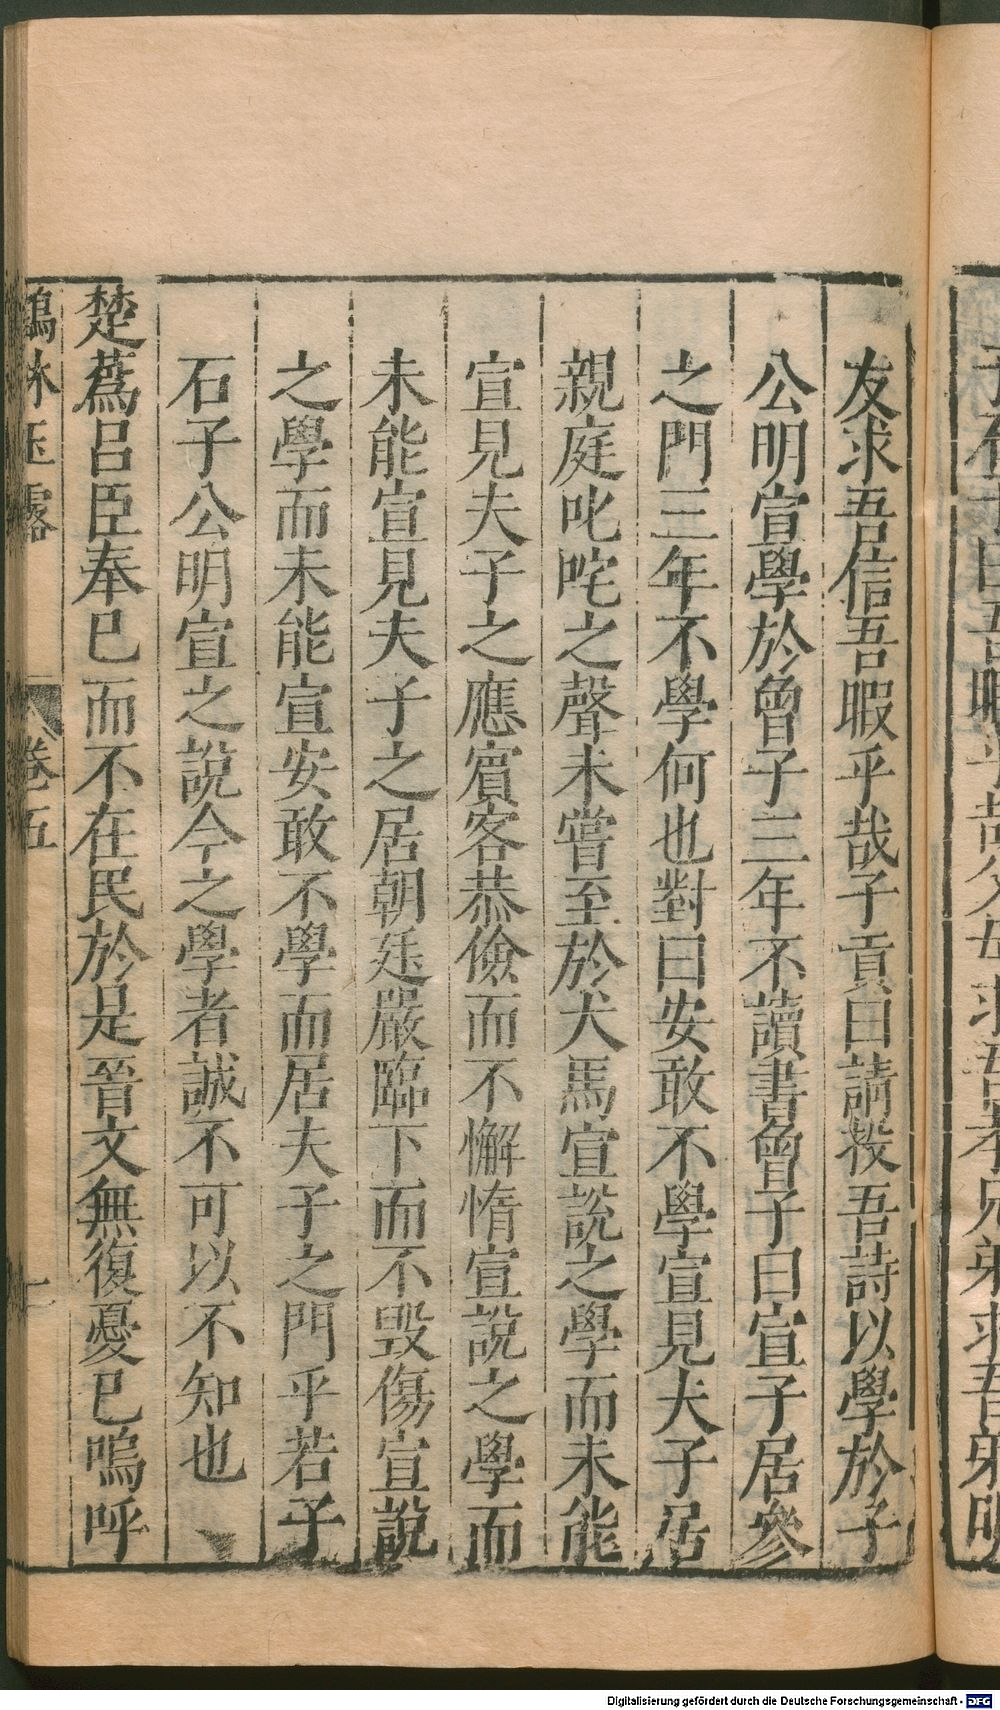 友求吾信吾暇乎哉子貢曰請投吾詩以學於子
公明宣學於曾子三年不讀書曾子曰宣子居參
之門三年不學何也對曰安敢不學宣見夫子居
親庭叱咤之聲未嘗至於犬馬宣說之學而未能
宣見夫子之應賓客恭儉而不懈惰宣說之學而
未能宣見夫子之居朝廷嚴臨下而不毀傷宣說
之學而未能宣安敢不學而居夫子之門乎若子
石子公明宣之說今之學者誠不可以不知也
楚蒍呂臣奉己而不在民於是晉文無復憂已嗚呼
鶴林玉露 卷五
Digitalisierung gefördert durch die Deutsche Forschungsgemeinschaft - DFG